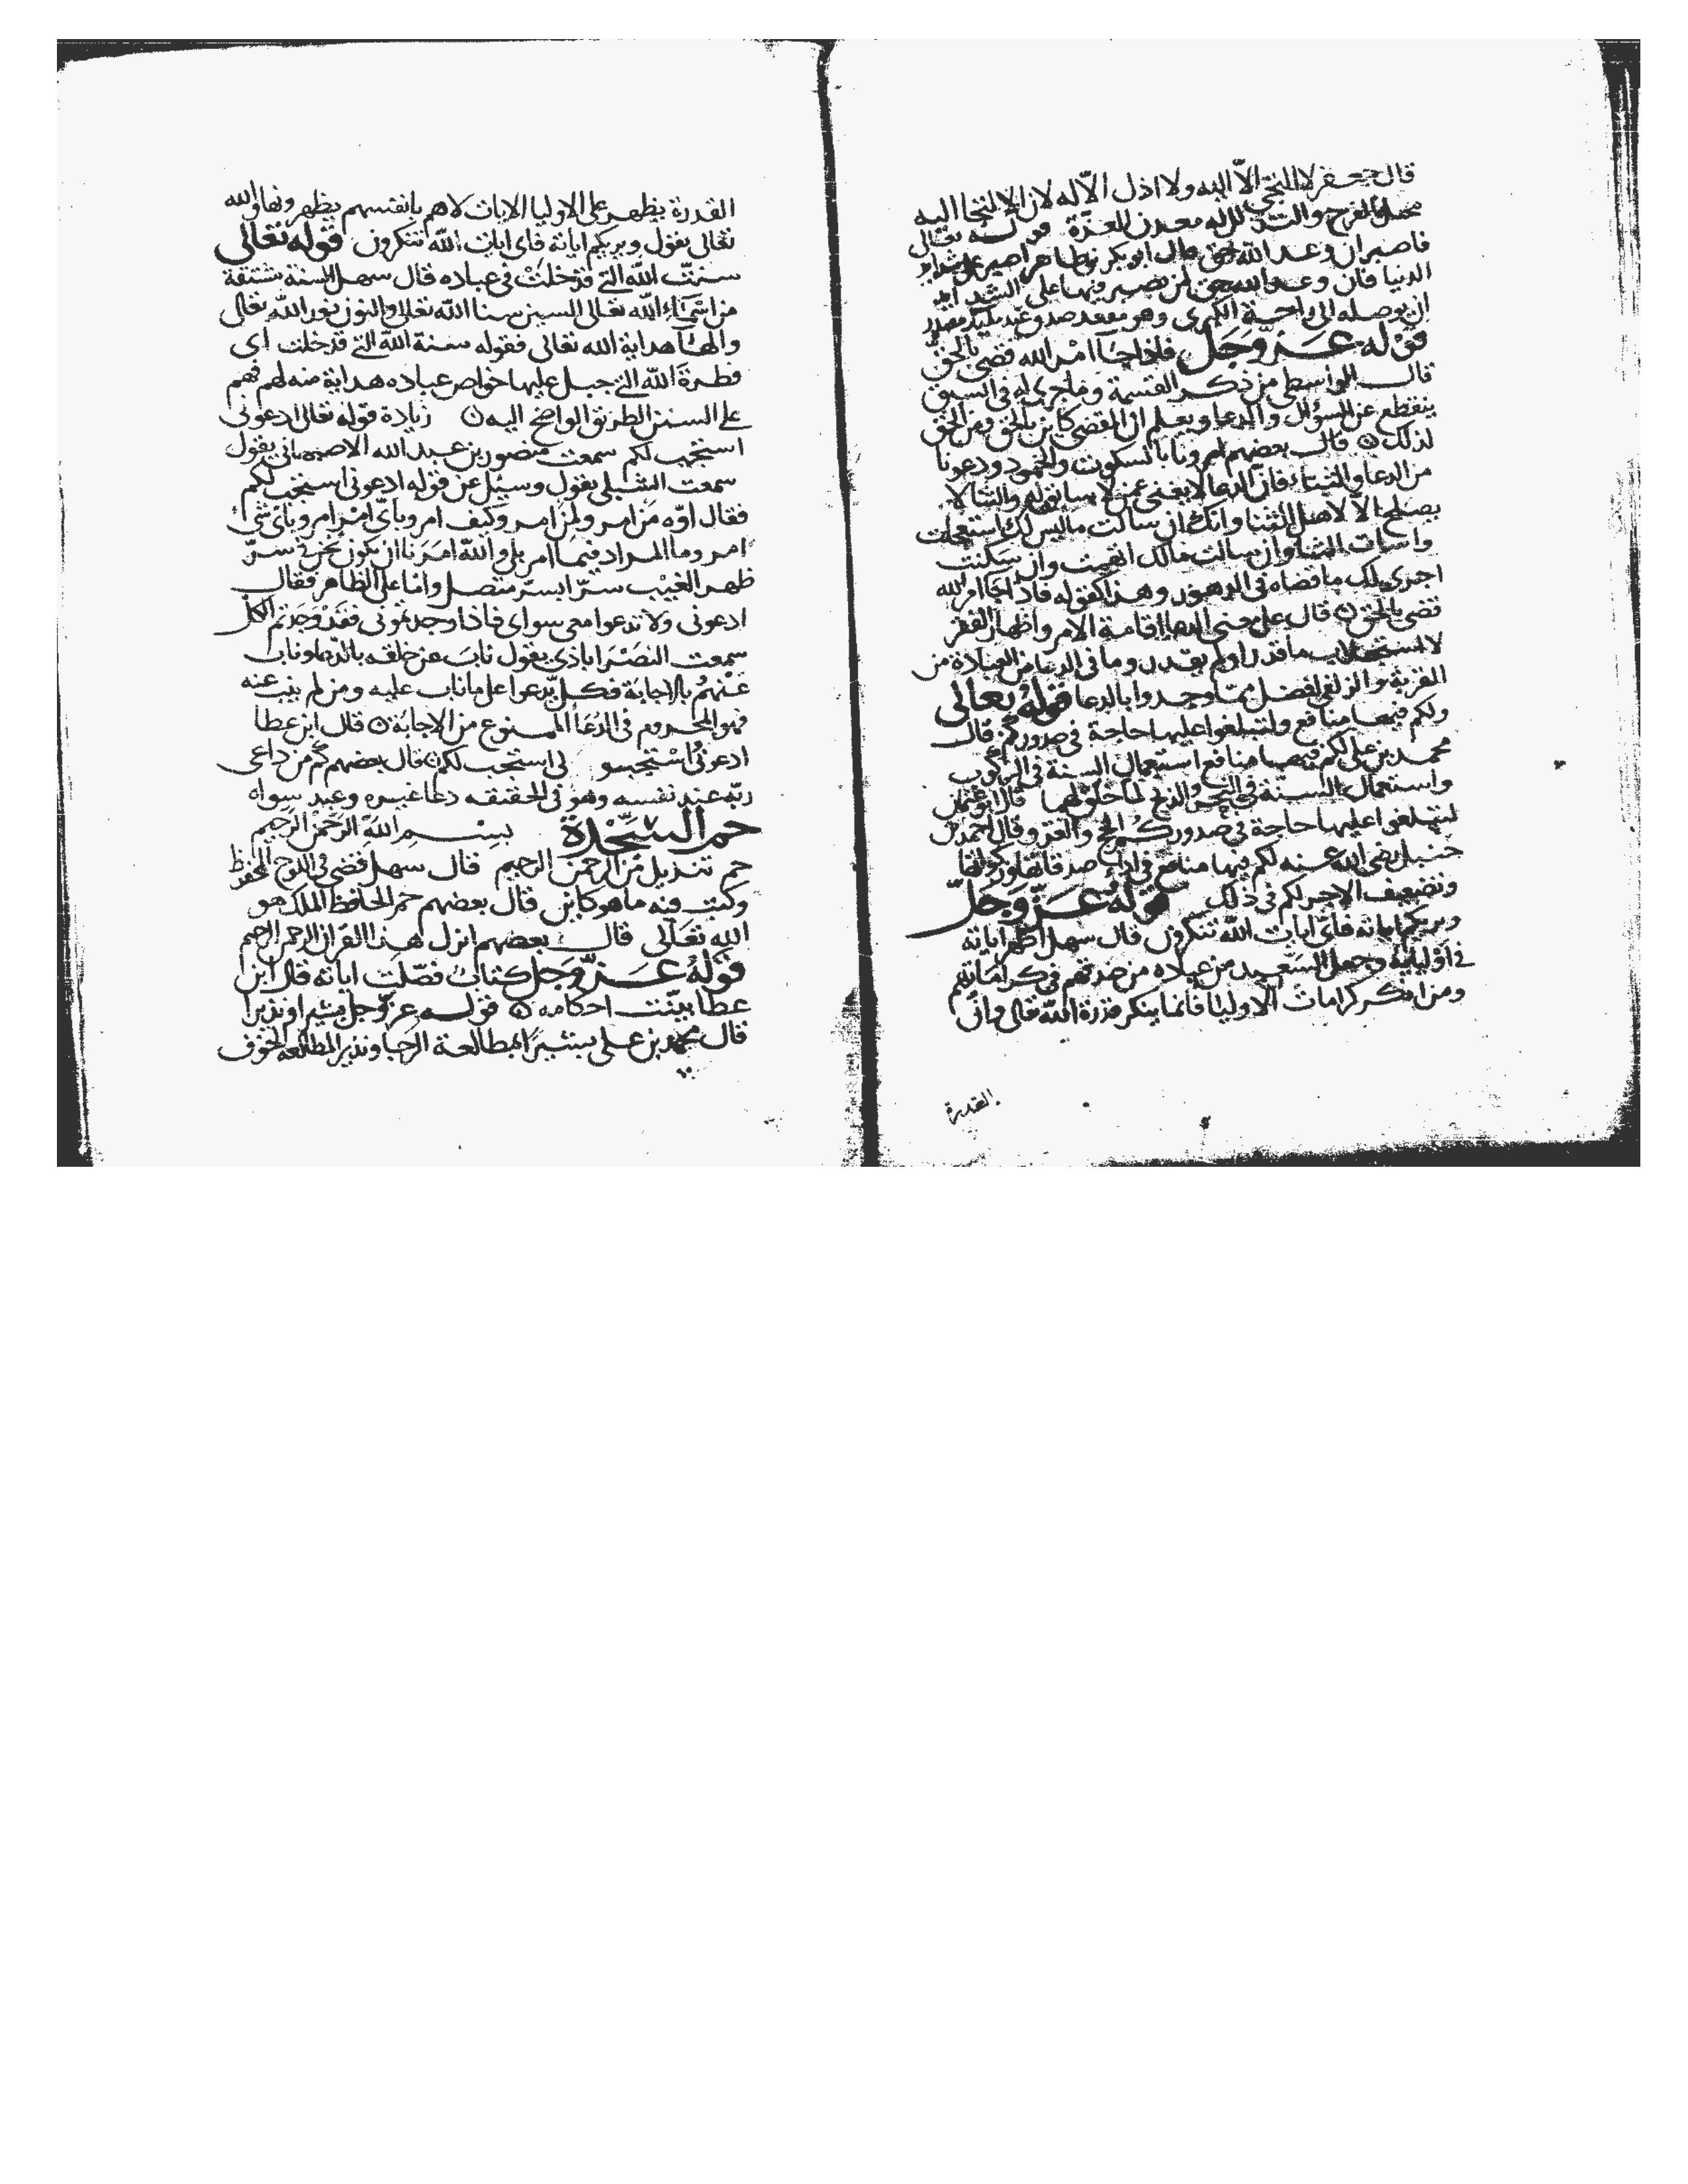 قال جعفر لا التجئ الا اليه ولا اذل الا له لان الالتجا اليه
محل الفرح والتذلل له معدن العزة قوله تعالى
فاصبر ان وعد الله حق قال ابو بكر بن طاهر اصبر على شدايد
الدنيا فان وعد الله حق لمن صبر فيها على الشدايد
ان يوصله الى راحة الكبرى وهو مقعد صدق عند مليك مقتدر
قوله عز وجل فاذا جاء امر الله قضى بالحق
قال الواسطى من ذكر القسمة وما جرى له فى السبق
ينقطع عن السؤال والدعا ويعلم ان المقضى كاين بالحق ومن الحق
لذلك ن قال بعضهم امرونا بالسكوت والخمود ودعونا
من الدعا والثناء فان الدعا لا يغنى عمن لا سابق له والثنا لا
يصلح الا لاهل الثنا وانك ان سالت ماليس لك استعجلت
واسات الثنا وان سالت مالك اتهمت وان سكنت
اجرى لك ما قضاه فى الدهور وهذا كقوله فاذا جا امر الله
قضى بالحق ن قال على معنى الدعا اقامة الامر واظهار الفقر
لا استجلاب ما قدر او لم يقدر وما فى الدعا من العبادة من
القربة والزلفى افضل مما وجدوا بالدعا قوله تعالى
ولكم فيها منافع ولتبلغوا عليها حاجة فى صدوركم قال
محمد بن على لكم فيها منافع استعمال السنة فى الركوب
واستعمال السنة فى النحر والذبح لما خلق لهما قال ابو عثمن
لتبلغوا عليها حاجة فى صدوركم الحج والغزو وقال احمد بن
حنبل رضى الله عنه لكم فيها منافع فى اداء صدقاتها وركوبها
وتضعيف الاجر لكم فى ذلك قوله عز وجل
ويريكم اياته فاى ايات الله تنكرون قال سهل اظهر اياته
فى اوليائه وجعل السعيد من عباده من صدقهم فى كراماتهم
ومن انكر كرامات الاوليا فانما ينكر قدرة الله تعالى وان
القدرة
القدرة يظهر على الاوليا الايات لا هم بانفسهم يظهرونها والله
تعالى يقول ويريكم اياته فاى ايات الله تنكرون قوله تعالى
سنت الله التى قد خلت فى عباده قال سهل السنة مشتقة
من اسماء الله تعالى السين سنا الله تعالى والنون نور الله تعالى
والهآ هداية الله تعالى فقوله سنة الله التى قد خلت اى
فطرة الله التى جبل عليها خواص عباده هداية منه لهم فهم
على السنن الطريق الواضح اليه ن زيادة قوله تعالى ادعونى
استجب لكم سمعت منصور بن عبد الله الاصبهانى يقول
سمعت الشبلى يقول وسئل عن قوله ادعونى استجب لكم
فقال اوه من امر ولمن امر وكيف امر وباى امر امر وباى شئ
امر وما المراد فيما امر بلى والله امرنا ان نكون نحن فى سر
ظهر الغيب سرا بسر متصل واما على الظاهر فقال
ادعونى ولا تدعوا معى سواى فاذا وجدتمونى فقد وجدتم الكل
سمعت النصراباذى يقول ناب عن خلقه بالدعا وناب
عنهم بالاجابة فكل يدعوا على ما ناب عليه ومن لم ينب عنه
فهو المحروم فى الدعا الممنوع من الاجابة ن قال ابن عطا
ادعونى استجيبو لى استجب لكم ن قال بعضهم كم من داعى
ربه عند نفسه وهو فى الحقيقه دعا غيره وعبد سواه
حم السجدة بسم الله الرحمن الرحيم
حم تنزيل من الرحمن الرحيم قال سهل قضى فى اللوح المحفوظ
وكتب فيه ما هو كاين قال بعضهم حم الحافظ الملك هو
الله تعالى قال بعضهم انزل هذا القران الرحمن الرحيم
قوله عز وجل كتاب فصلت اياته قال ابن
عطا بينت احكامه ن قوله عز وجل بشيرا ونذيرا
قال محمد بن على بشيرا بمطالعة الرجا ونذيرا لمطالعه الخوف